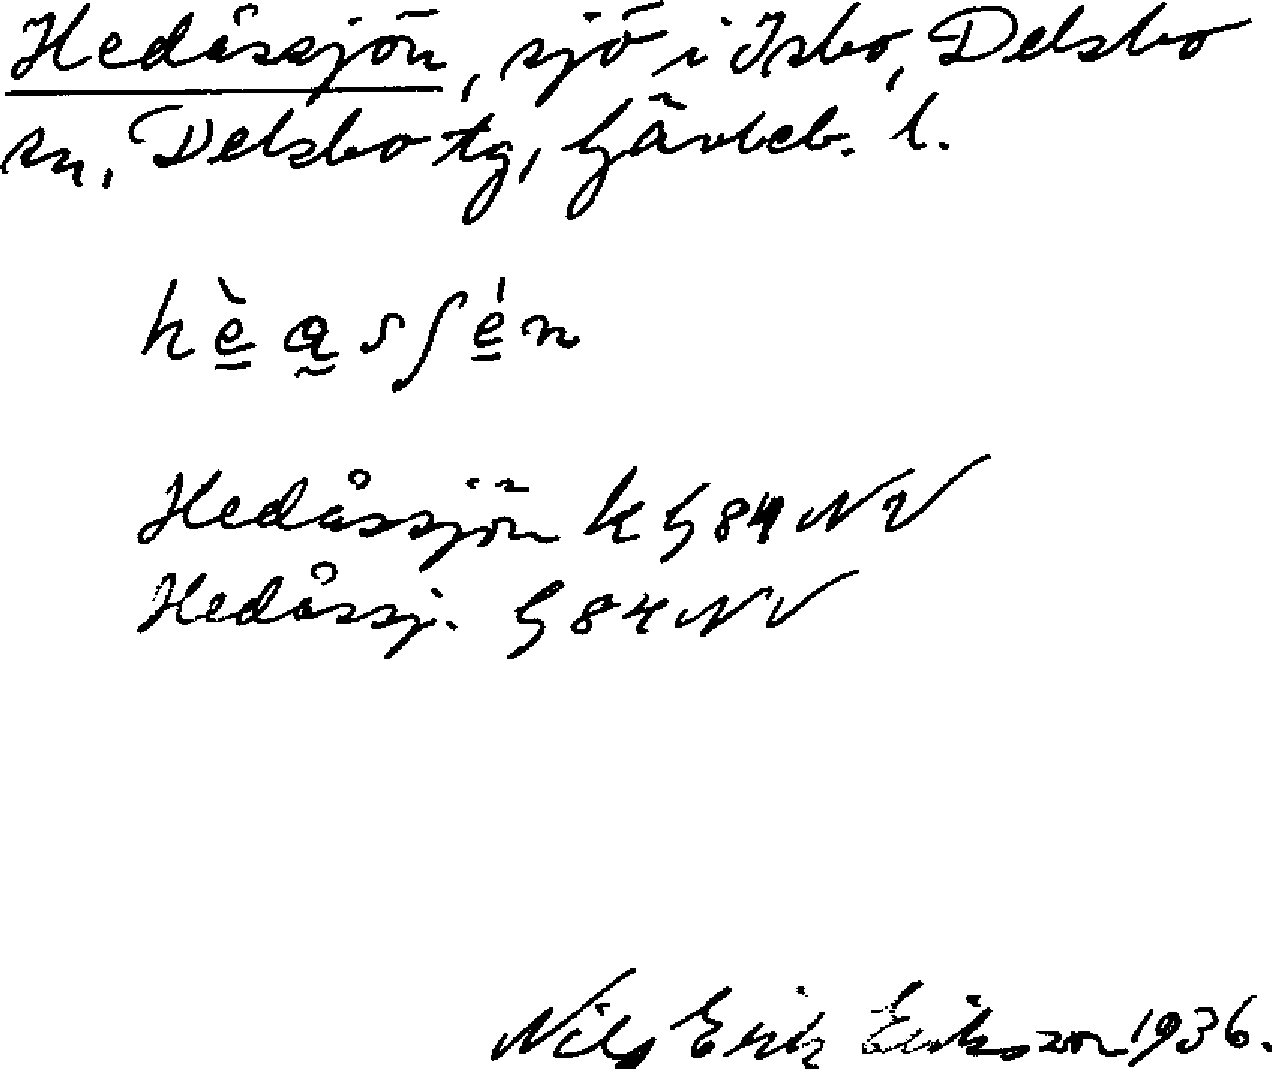 Hedåssjön, sjö i Isbo, Delsbo
sn, Delsbo tg, Gävleb. l.
hè̱a̰sʃé̱n
Hedåssjön k G 84 NV
Hedåssj. G 84 NV
Nils Erik Eriksson 1936.